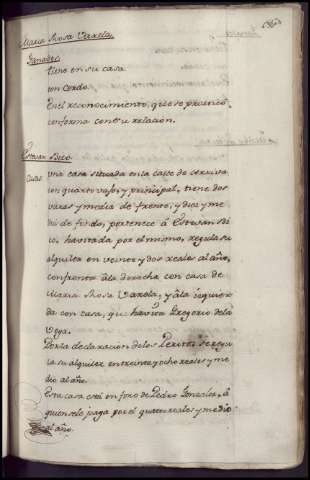 Maria Rosa Varela
Ganados
tiene en su casa
un Cerdo.
En el reconocimiento, que se practicó
conforma con su relacion.
Estevan Bico
Casas
una casa situada en la calle de
con quarto vajo, y principal, tiene dos
varas y media de frente, y diez y me
dia de fondo, pertenece á Estevan Bi
co, havitada por el mismo, regula su
alquiler en veinte y dos reales al año,
confronta á la derecha con casa de
Maria Rosa Varela, y á la izquier
da con casa, que havita Gregorio de la
Vega.
Por la declaracion de los Peritos se regu
la su alquiler en treinta y ocho reales y me
dio al año.
Esta casa está en foro de Pedro Gonzalez, á
quien se le paga por el quatro reales y medio
al año.